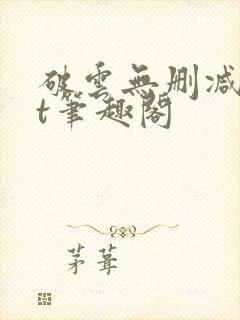 破雲無刪减
t筆趣閣
茅葺